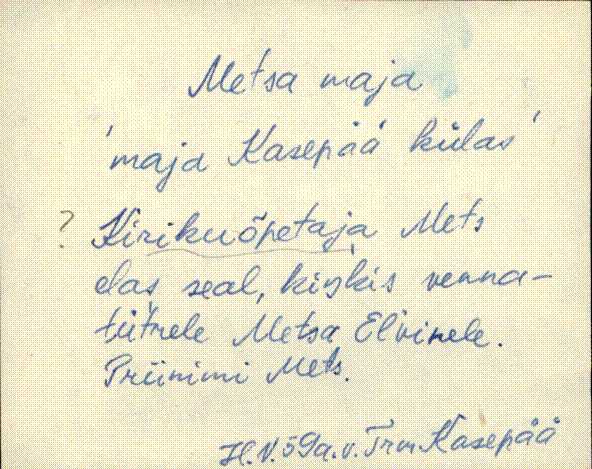 Metsa maja
'maja Kasepää külas'
? Kirikuõpetaja Mets
elas seal, kiŋkis venna-
tütrele Metsa El'vinele.
Priinimi Mets.
H.V. 59 a.v. Trm Kasepää